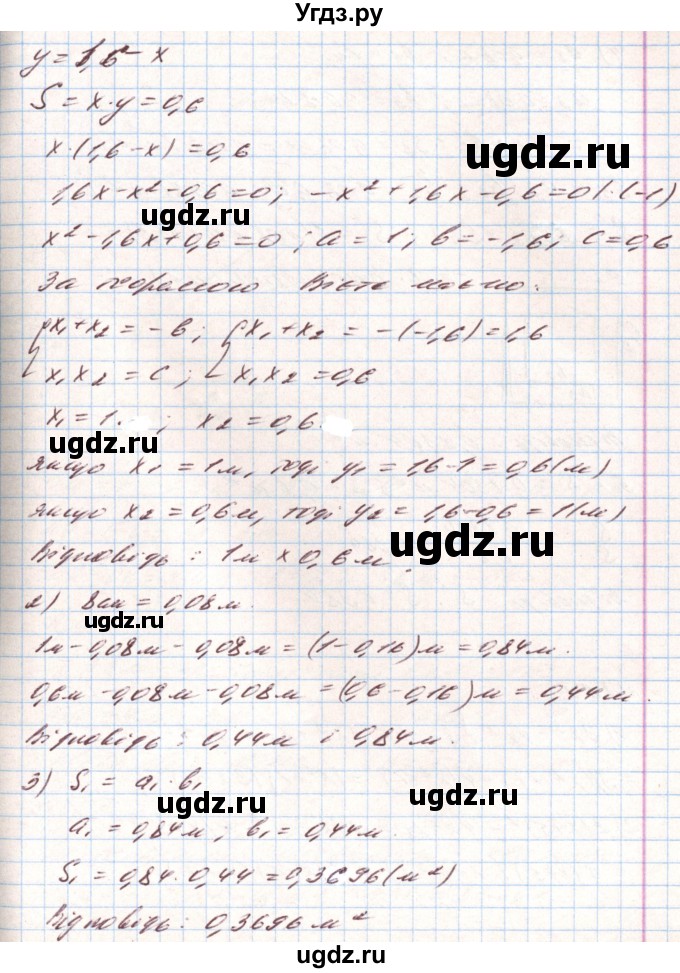 Угдз.ру
y = 1,6 - x
S = x · y = 0,6
x · (1,6 - x) = 0,6
ugdz.ru
1,6x - x² - 0,6 = 0; -x² + 1,6x - 0,6 = 0 | · (-1)
ugdz.ru
x² - 1,6x + 0,6 = 0; a = 1; b = -1,6; c = 0,6
За теоремою Вієта маємо:
{ x₁ + x₂ = -b; { x₁ + x₂ = -(-1,6) = 1,6
x₁x₂ = c; x₁x₂ = 0,6
x₁ = 1; x₂ = 0,6.
ugdz.ru
якщо x₁ = 1м, тоді y₁ = 1,6 - 1 = 0,6 (м)
якщо x₂ = 0,6м, тоді y₂ = 1,6 - 0,6 = 1 (м)
ugdz.ru
Відповідь: 1м x 0,6м.
2) 8см = 0,08м.
ugdz.ru
1м - 0,08м - 0,08м = (1 - 0,16)м = 0,84м.
0,6м - 0,08м - 0,08м = (0,6 - 0,16)м = 0,44м.
Відповідь: 0,44м і 0,84м.
3) S₁ = a₁ · b₁
ugdz.ru
ugdz.ru
a₁ = 0,84м; b₁ = 0,44м.
S₁ = 0,84 · 0,44 = 0,3696 (м²)
Відповідь: 0,3696 м²
ugdz.ru